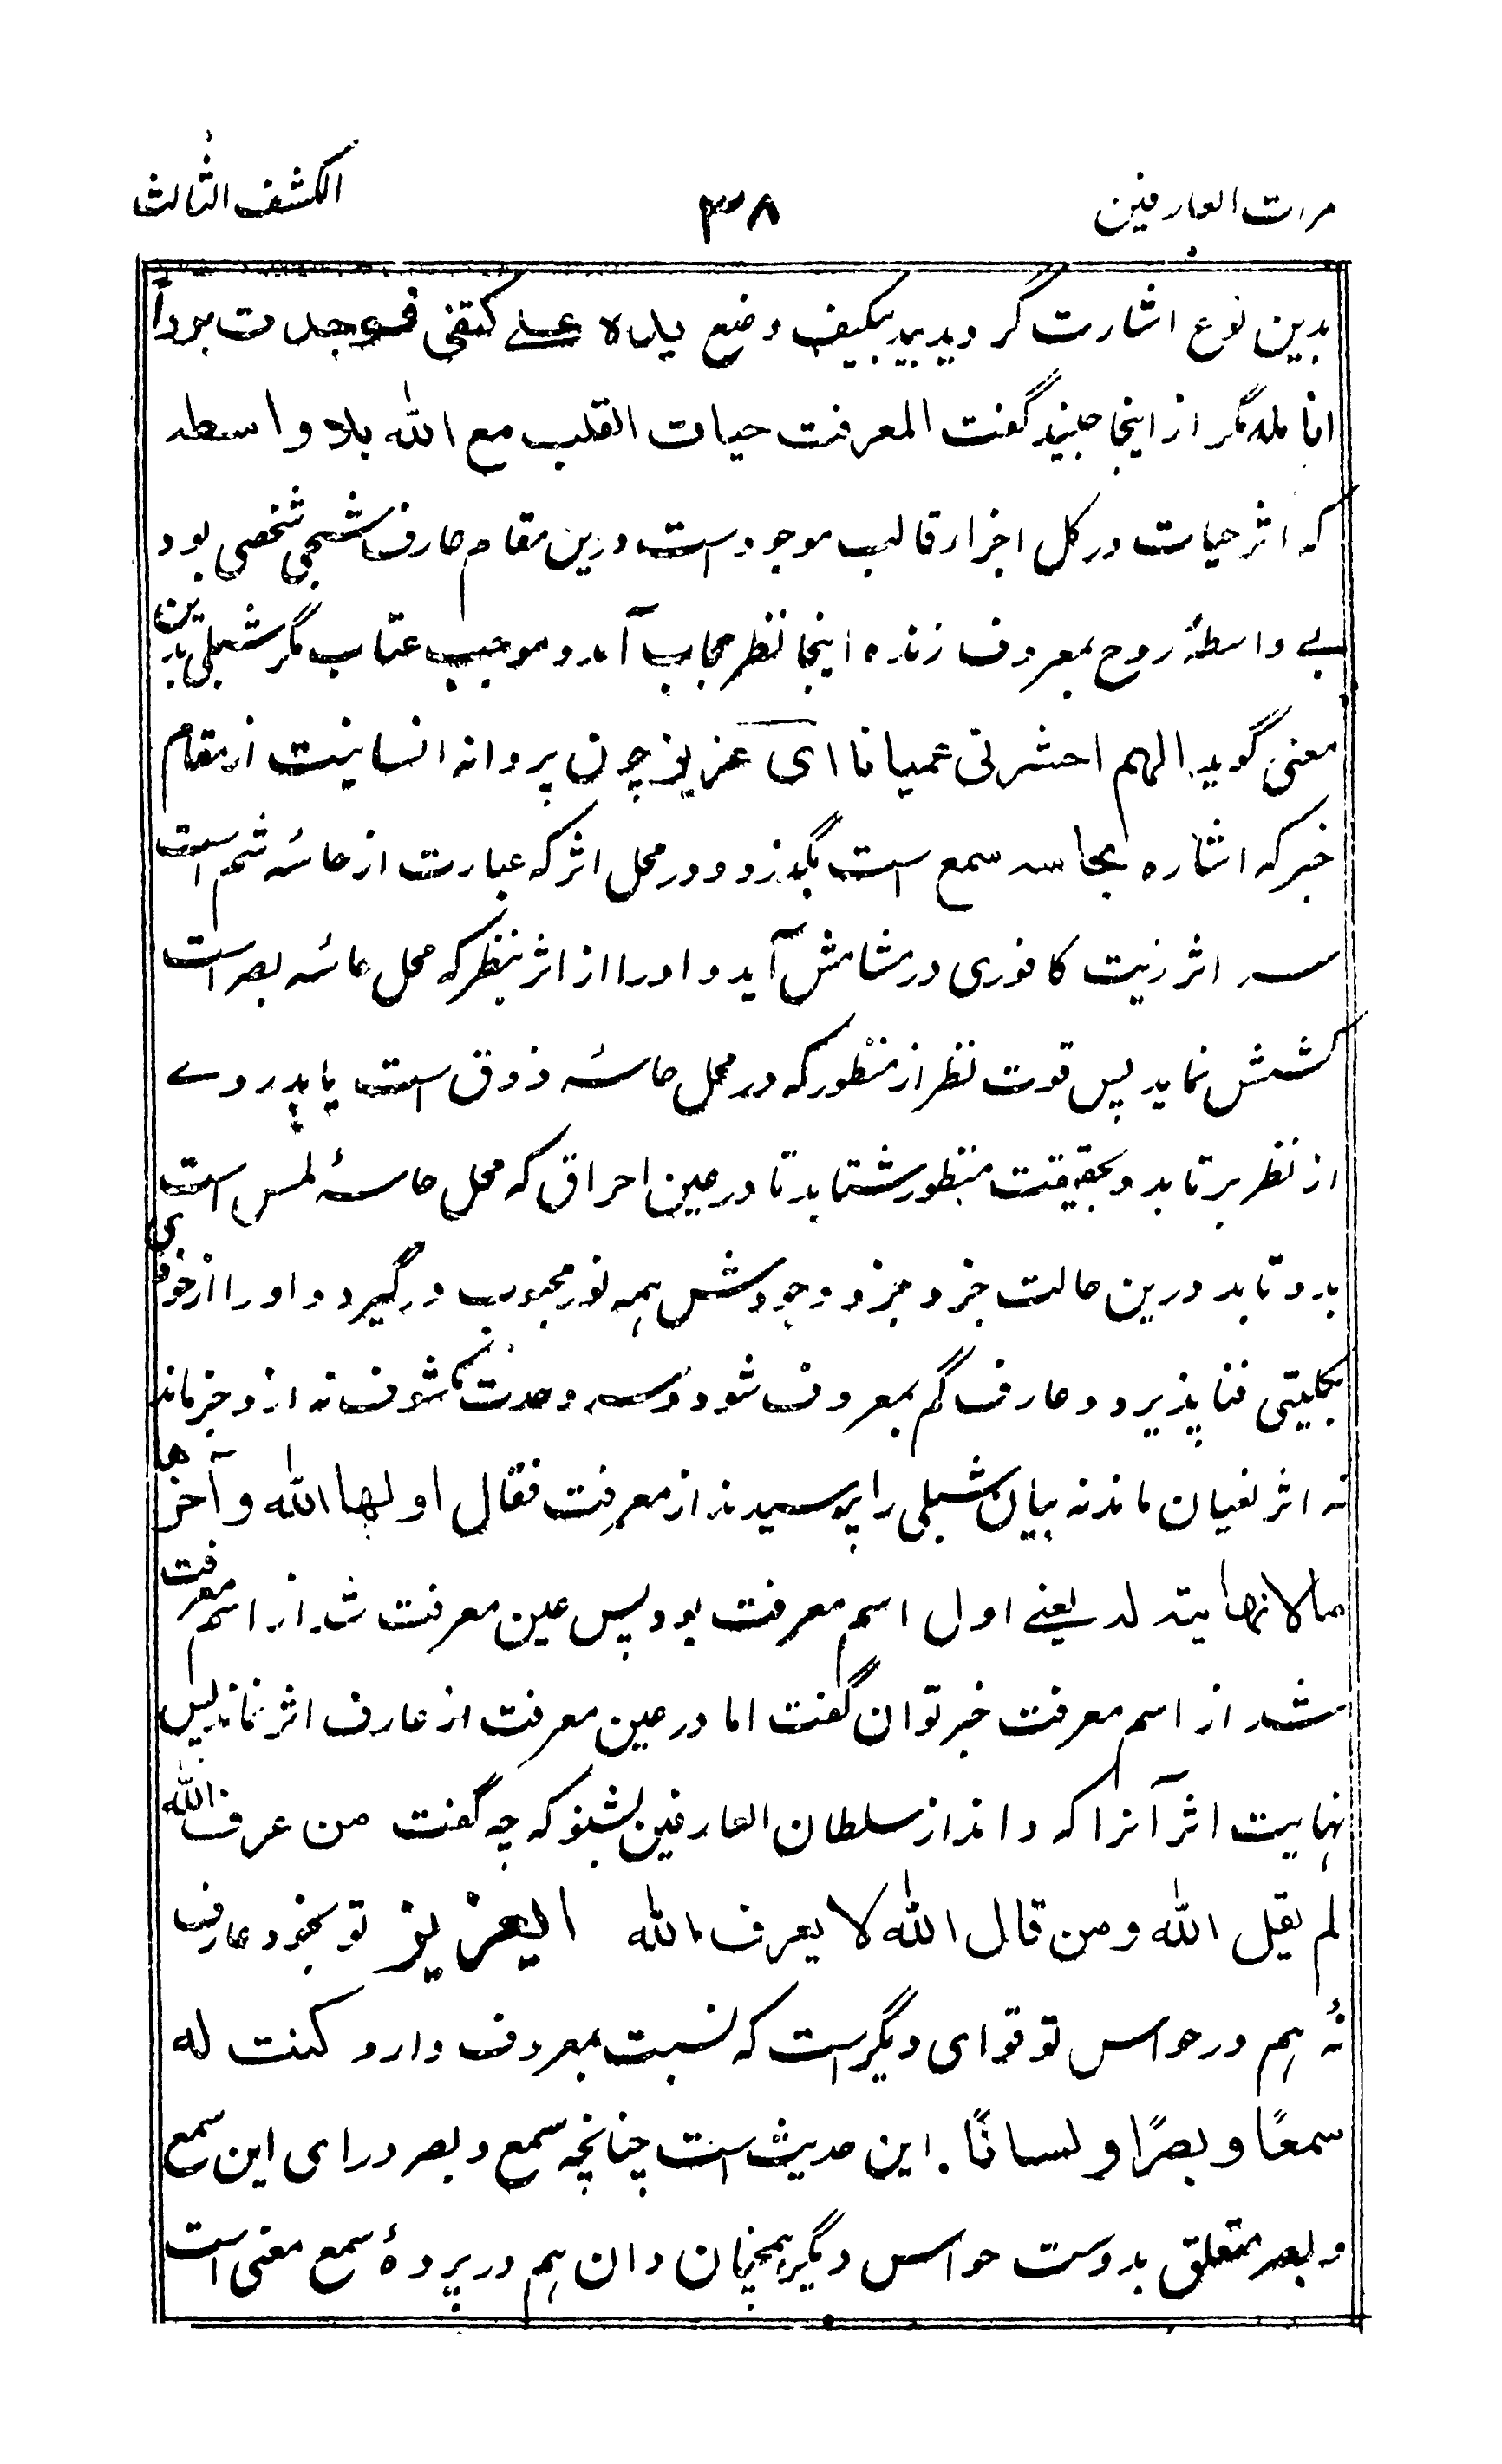 مرات العارفین ۳۸ الکشف الثالث
بدین نوع اشارت گر ویدبید بیکیف وضع یداه علے کتفی فوجدت بردا
انامله مگر از اینجا جنید گفت المعرفت حیات القلب مع الله بلا واسطه
که اثر حیات در کل اجزار قالب موجودست درین مقام عارف شبحی شخصی بود
بے واسطۂ روح بمعروف زنده اینجا نظر حجاب آمد و موجب عتاب مگر شبلی بدین
معنی گوید الهم احشرنی عمیانا ای عزیز چون پروانه انسانیت از مقام
خبر که اشاره بحاسه سمع ست بگذرد و در محل اثر که عبارت از حاسۂ شم است
سه اثر زیت کافوری در مشامش آید و او را از اثر بنظر که محل حاسۂ بصر است
کشش نماید پس قوت نظر از منظور که در محل حاسۂ ذوق ست یابد روے
از نظر برتابد و بحقیقت منظور شتابد تا در عین احراق که محل حاسۂ لمس است
بدو تابد درین حالت جزو جزو وجودش همه نور محبوب درگیرد و او را از خودی
بکلیتی فنا پذیرد و عارف گم بمعروف شود و سه وحدت مکشوف نه ازو خبر ماند
نه اثر نعیان ماند نه بیان شبلی را پرسیدند از معرفت فقال اولها الله و آخرها
مالا نهایته له یعنے اول اسم معرفت بود پس عین معرفت شد از اسم معرفت
شد از اسم معرفت خبر توان گفت اما در عین معرفت از عارف اثر نماند پس
نهایت اثر آنرا که داند از سلطان العارفین بشنو که چه گفت من عرف الله
لم یقل الله ومن قال الله لا یعرف الله ایعزیز تو بخود عارف
نۂ هم در حواس تو قوای دیگرست که نسبت بمعروف دارد کنت له
سمعًا و بصرًا و لسانًا. این حدیث است چنانچه سمع و بصر ورای این سمع
و بصر متعلق بدوست حواس دیگر همچنان دان هم در پردۂ سمع معنی است